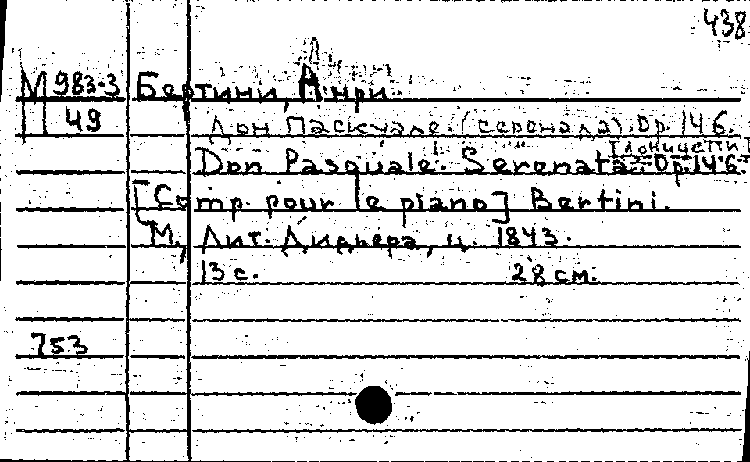 438
М 983-3 Бертини, Анри.
П 49
Дон Паскуале. (серенада). Op. 146.
[Доницетти]
Don Pasquale. Serenata. Op. 146.
[Comp. pour le piano] Bertini.
М., Лит. Дидьера, ц. 1843.
13 с. 28 см.
753